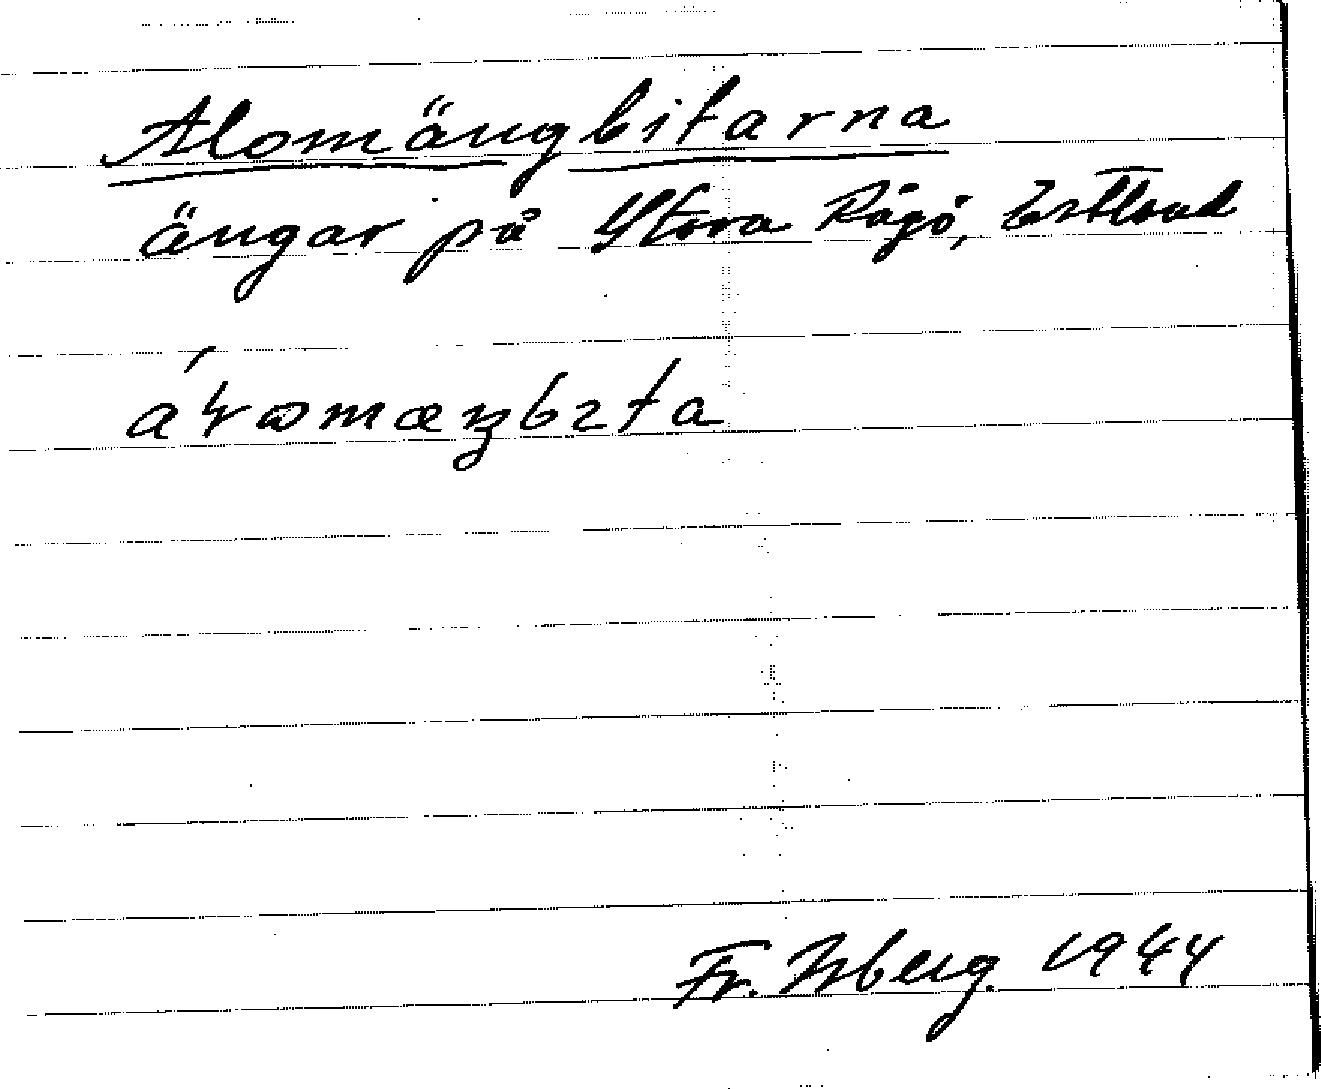 Alomängbitarna
ängar på Stora Rågö, Estland
Fr. Isberg. 1944